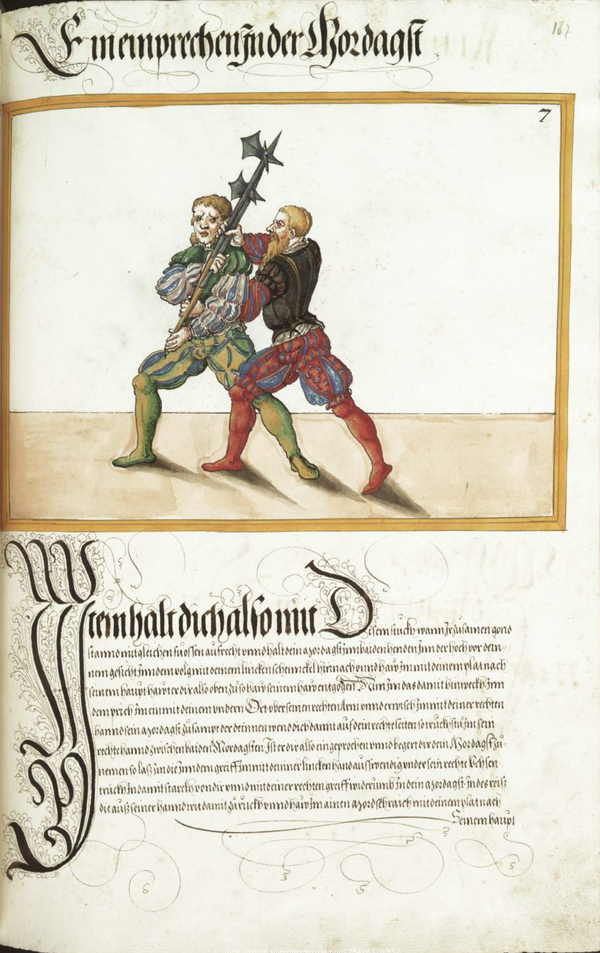 Ein einprechen Jn der Mordagst
187
7
Jtem halt dich also mit Disem stuckh wann Jr zusamen gond
stannd mit gleichen fuossen auf recht vnnd halt dein Mordagst Jnn baiden henden Jnn der hoch vor dein¬
nem gesicht Jnndem volg mit deinem lincken schennckel hinnach vnnd haw Jm mit deinem plat nach
seinem haupt hawt er dir also oben zu so haw seinem haw entgegen Nim Jm das damit hinweckh Jnn
dem prich Jm ein mit deinem vndern Ort vber seinen rechten Arm vnnd erwisch Jm mit deiner rechten
hannd sein Mordagst zusampt der deinnen wend dich damit auf dein rechte seiten so truckhstu Jm sein
rechte hannd zwischen baiden Mordagsten Jst er dir also eingeprochen vnnd begert dir dein Mordagst zu
nemen so laß Jm die Jnn dem greiff Jm mit deiner lincken hand außwendig wider sein rechte Vchsen
truckh Jn damit starckh von dir vnnd mit deiner rechten greiff widerumb Jn dein Mordagst Jndes reiß
die auß seiner hannd trit damit zuruckh vnnd haw Jm ainen Mordschraich mit deinem plat nach
Seinem haupt